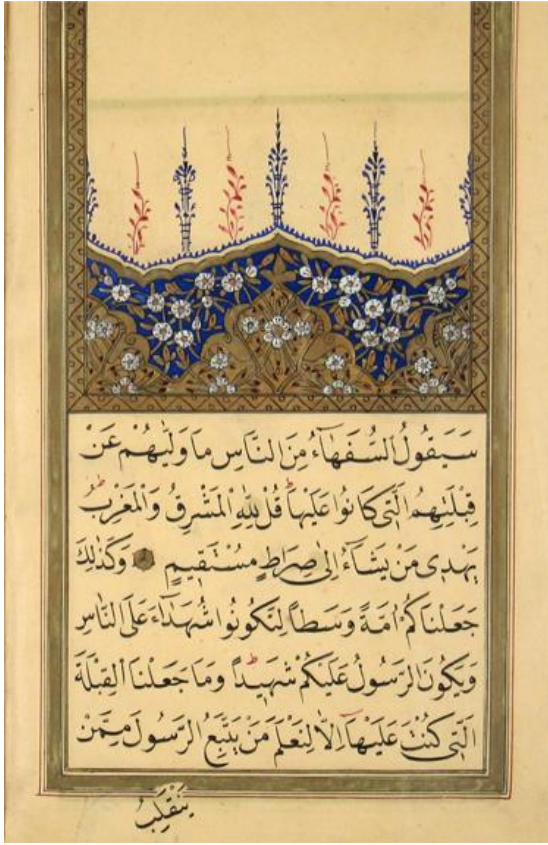 سَيَقُولُ السُّفَهَاۤءُ مِنَ النَّاسِ مَا وَلّٰيهُمْ عَنْ
قِبْلَتِهِمُ الَّتٖى كَانُوا عَلَيْهَاۜ قُلْ لِلّٰهِ الْمَشْرِقُ وَالْمَغْرِبُۜ
يَهْدٖى مَنْ يَشَاۤءُ اِلٰى صِرَاطٍ مُسْتَقٖيمٍ وَكَذٰلِكَ
جَعَلْنَاكُمْ اُمَّةً وَسَطاً لِتَكُونُوا شُهَدَاۤءَ عَلَى النَّاسِ
وَيَكُونَ الرَّسُولُ عَلَيْكُمْ شَهٖيداًۜ وَمَا جَعَلْنَا الْقِبْلَةَ
الَّتٖى كُنْتَ عَلَيْهَاۤ اِلَّا لِنَعْلَمَ مَنْ يَتَّبِعُ الرَّسُولَ مِمَّنْ
يَنْقَلِبُ